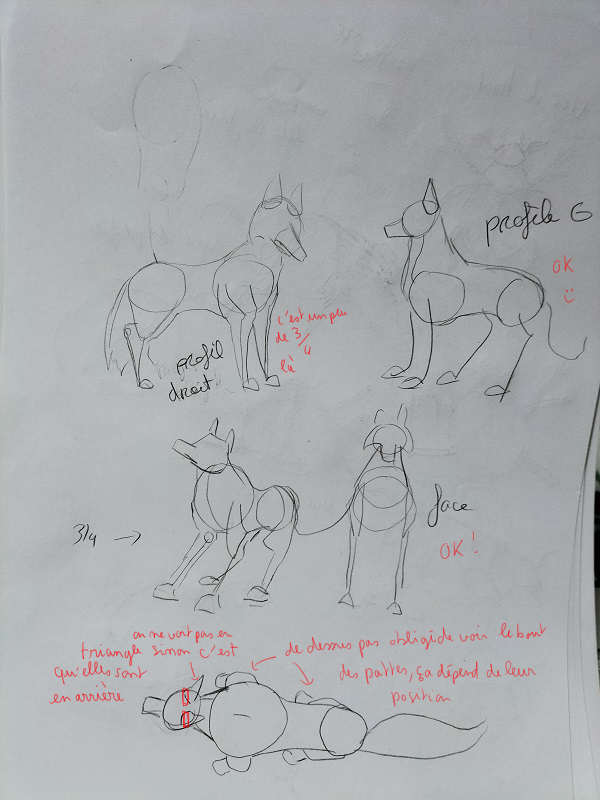 profile G
OK
c'est un peu
de 3/4
là
profil
droit
3/4 →
face
OK !
on ne voit pas en
triangle sinon c'est
qu'elles sont
en arrière
de dessus pas obligé de voir le bout
des pattes, ça dépend de leur
position